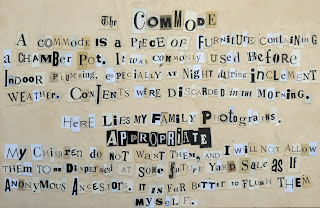 The COMMODE
A COMMODE is A PIECE OF FURNITURE CONTAINING
A CHAMBER POT. IT WAS COMMONLY USED BEFORE
INDOOR PLUMBING, ESPECIALLY AT NIGHT DURING INCLEMENT
WEATHER. CONTENTS WERE DISCARDED IN THE MORNING.
HERE LIES MY FAMILY PHOTOGRAPHS.
APPROPRIATE
MY CHILDREN DO NOT WANT THEM, AND I WILL NOT ALLOW
THEM TO BE DISPERSED AT SOME FUTURE YARD SALE AS IF
ANONYMOUS ANCESTORS. IT IS FAR BETTER TO FLUSH THEM
MYSELF.